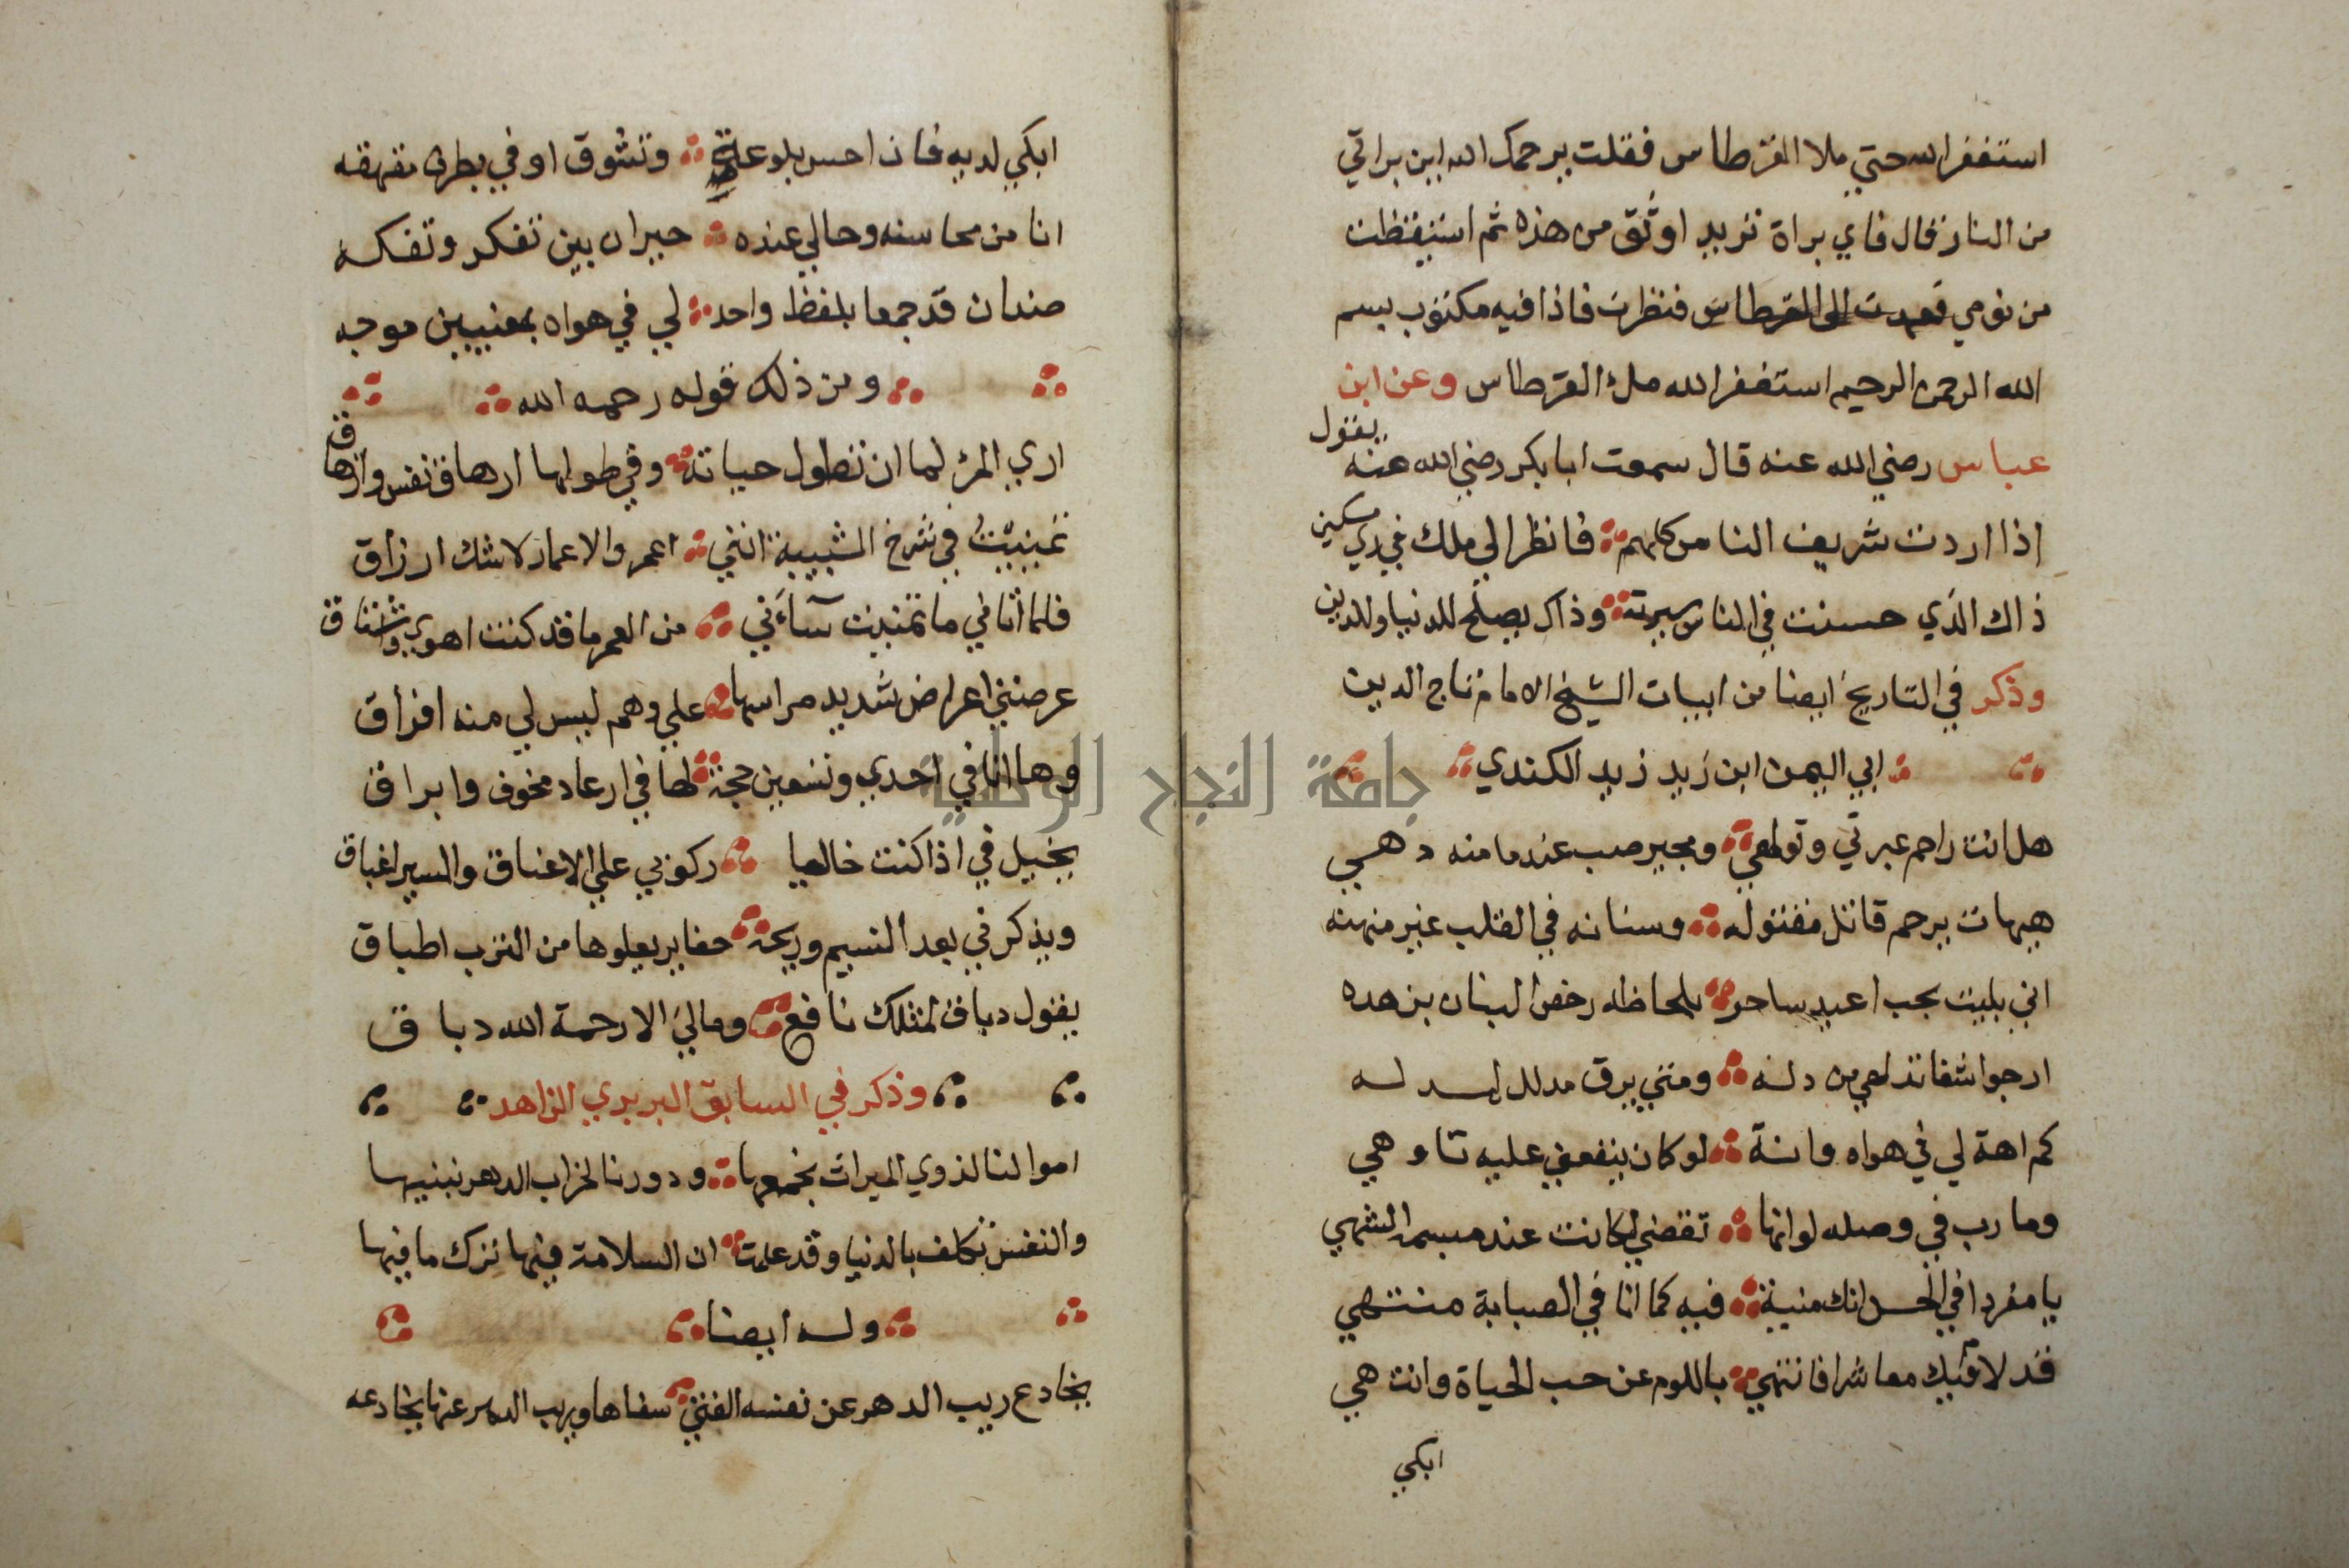 استغفر الله حتي ملا القرطاس فقلت يرحمك الله اين براتي
من النار فقال فاي براة تريد اوثق من هذه ثم استيقظت
من نومي فعمدت الى القرطاس فنظرت فاذا فيه مكتوب بسم
الله الرحمن الرحيم استغفر الله ملء القرطاس وعن ابن
عباس رضي الله عنه قال سمعت ابا بكر رضي الله عنه يقول
اذا اردت شريف الناس كلهم فانظر الي ملك في زي مسكين
ذاك الذي حسنت في الناس سيرته وذاك يصلح للدنيا وللدين
وذكر في التاريخ ايضا من ابيات الشيخ الامام تاج الدين
ابي اليمن ابن زيد زيد الكندي
هل انت راحم عبرتي وتولهي ومجير صب عند ما منه دهي
هيهات يرحم قاتل مقتوله وسنانه في القلب غير منهنه
اني بليت بحب اغيد ساحر بلحاظه رخص البنان برهده
ارجوا شفا تذلعي من دله ومتي يرق مدلل لمدله
كم اهة لي في هواه وانة لو كان ينفعني عليه تاوهي
وما رب في وصله لو انها تقضي لكانت عند مبسمه الشهي
يا مفردا في الحسن انك منية فيه كما انا في الصبابة منتهي
قد لام فيك معاشر افانتهي باللوم عن حب الحياة وانت هي
ابكي
ابكي لديه فان احس بلوعة وتشوق اوفي بطرف مقهقه
انا من محاسنه وحالي عنده حيران بين تفكر وتفكه
ضدان قد جمعا بلفظ واحد لي في هواه بمعنيين موجه
ومن ذلك قوله رحمه الله
اري المرء لما ان تطول حياته وفي طولها ارهاق نفس وازهاق
تمنيت في شرخ الشبيبة انني اعمر والاعمار لا شك ارزاق
فلما اتاني ما تمنيت ساءني من العمر ما قد كنت اهوي واشتاق
عرضتني اعراض شديد مراسها علي وهم ليس لي منه افراق
وها انا في احدي وتسعين حجة لها في ارعاد مخوف وابراق
يخيل في اذا كنت خاليا ركوبي علي الاعناق والسير اغباق
ويذكرني بعد النسيم وريحه حفاير يعلوها من الترب اطباق
يقول دباق لمثلك نافع ومالي الا رحمة الله دباق
وذكر في السابق البربري الزاهد
اموالنا لذوي الميراث نجمعها ودورنا لخراب الدهر نبنيها
والنفس تكلف بالدنيا وقد علمت ان السلامة فيها ترك ما فيها
وله ايضا
يخادع ريب الدهر عن نفسه الفتي سفاها وريب الدهر عنها يخادعه
جامعة النجاح الوطنية